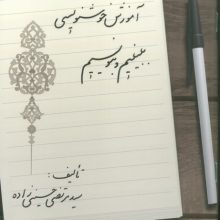 آموزش خوشنویسی
ببینیم و بنویسیم
تألیف:
سید مرتضی حسینی زاده